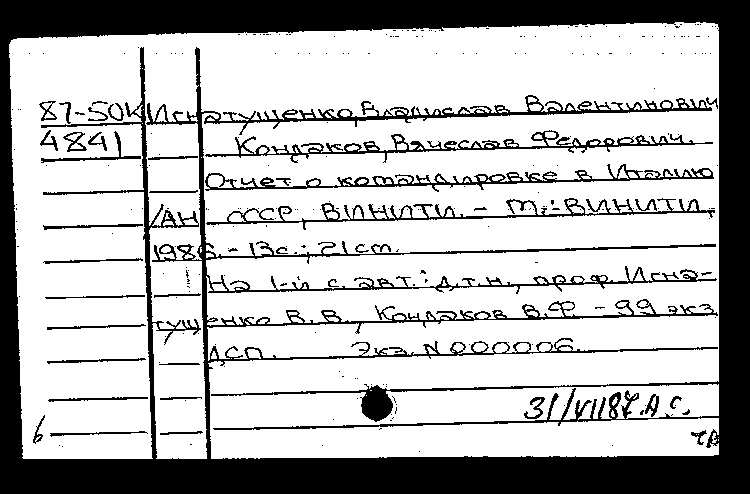 87-50К Игнатущенко, Владислав Валентинович
4841 Кондаков, Вячеслав Федорович.
Отчет о командировке в Италию
/АН СССР, ВИНИТИ. - М.: ВИНИТИ,
1986. - 13с.; 21см.
На 1-й с. авт.: д.т.н., проф. Игна-
тущенко В.В., Кондаков В.Ф - 99 экз
ДСП. Экз. N 000006.
31/VII87. А.С.
6